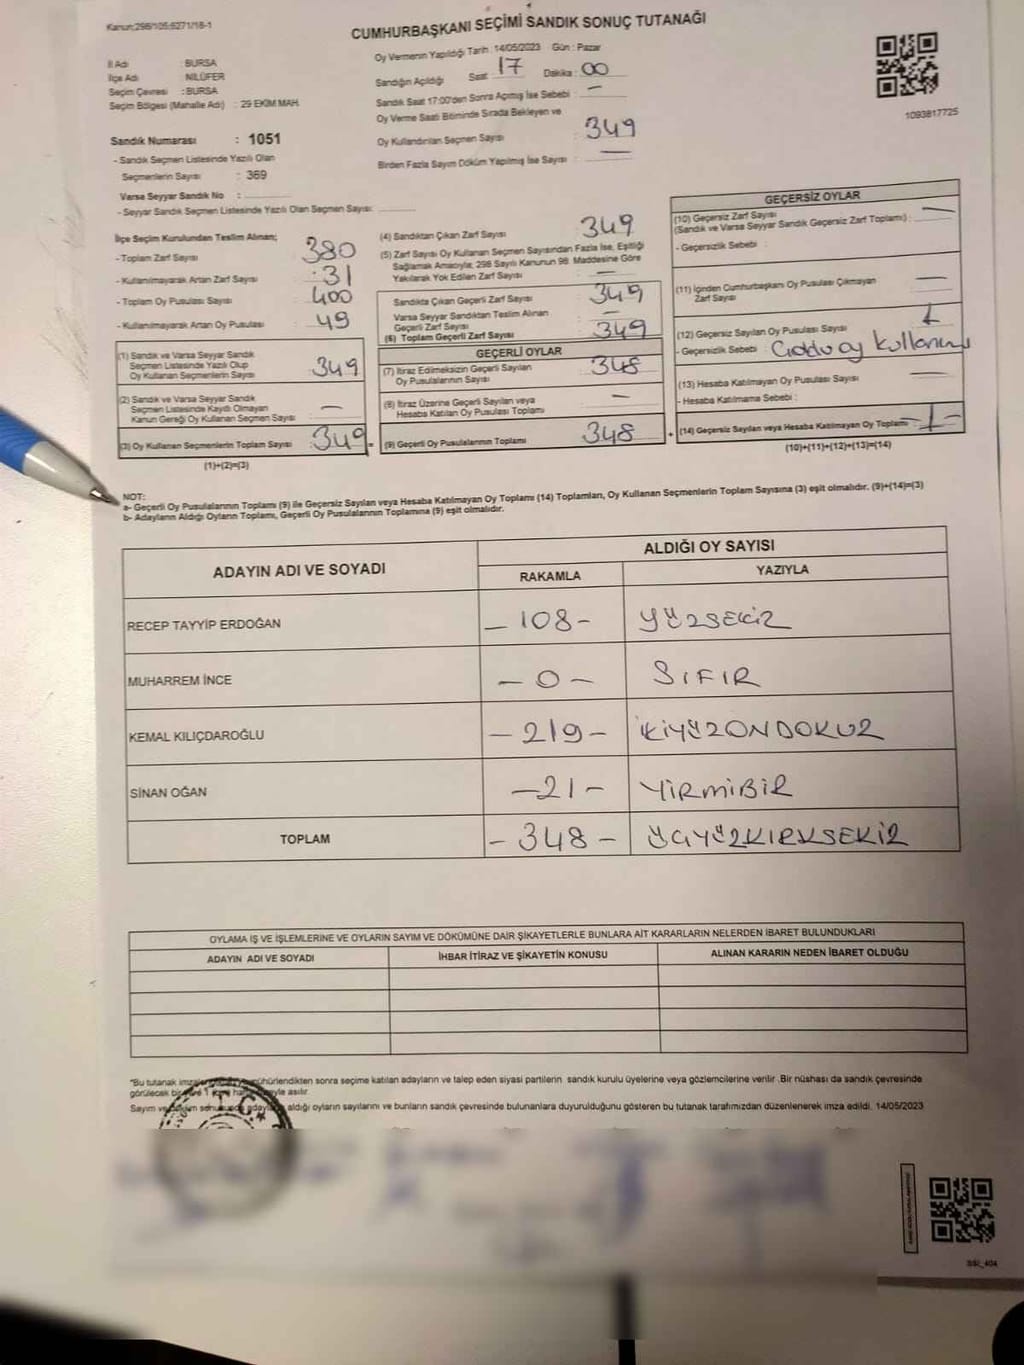 Kanun:298/105;6271/18-1
CUMHURBAŞKANI SEÇİMİ SANDIK SONUÇ TUTANAĞI
İl Adı : BURSA
İlçe Adı : NİLÜFER
Seçim Çevresi : BURSA
Seçim Bölgesi (Mahalle Adı) : 29 EKİM MAH.
Sandık Numarası : 1051
- Sandık Seçmen Listesinde Yazılı Olan
Seçmenlerin Sayısı : 369
Varsa Seyyar Sandık No :
- Seyyar Sandık Seçmen Listesinde Yazılı Olan Seçmen Sayısı:
Oy Vermenin Yapıldığı Tarih : 14/05/2023 Gün : Pazar
Sandığın Açıldığı Saat : 17 Dakika : 00
Sandık Saat 17:00'den Sonra Açılmış İse Sebebi : —
Oy Verme Saati Bitiminde Sırada Bekleyen ve
Oy Kullandırılan Seçmen Sayısı : 349
Birden Fazla Sayım Döküm Yapılmış İse Sayısı : —
1093817725
İlçe Seçim Kurulundan Teslim Alınan;
- Toplam Zarf Sayısı : 380
- Kullanılmayarak Artan Zarf Sayısı : 31
- Toplam Oy Pusulası Sayısı : 400
- Kullanılmayarak Artan Oy Pusulası : 49
(1) Sandık ve Varsa Seyyar Sandık
Seçmen Listesinde Yazılı Olup
Oy Kullanan Seçmenlerin Sayısı : 349
(2) Sandık ve Varsa Seyyar Sandık
Seçmen Listesinde Kayıtlı Olmayan
Kanun Gereği Oy Kullanan Seçmen Sayısı : —
(3) Oy Kullanan Seçmenlerin Toplam Sayısı : 349 =
(1)+(2)=(3)
(4) Sandıktan Çıkan Zarf Sayısı : 349
(5) Zarf Sayısı Oy Kullanan Seçmen Sayısından Fazla İse, Eşitliği
Sağlamak Amacıyla, 298 Sayılı Kanunun 98. Maddesine Göre
Yakılarak Yok Edilen Zarf Sayısı : —
Sandıkta Çıkan Geçerli Zarf Sayısı : 349
Varsa Seyyar Sandıktan Teslim Alınan
Geçerli Zarf Sayısı : —
(6) Toplam Geçerli Zarf Sayısı : 349
GEÇERLİ OYLAR
(7) İtiraz Edilmeksizin Geçerli Sayılan
Oy Pusulalarının Sayısı : 348
(8) İtiraz Üzerine Geçerli Sayılan veya
Hesaba Katılan Oy Pusulası Toplamı : —
(9) Geçerli Oy Pusulalarının Toplamı : 348 +
GEÇERSİZ OYLAR
(10) Geçersiz Zarf Sayısı
(Sandık ve Varsa Seyyar Sandık Geçersiz Zarf Toplamı) : —
- Geçersizlik Sebebi :
(11) İçinden Cumhurbaşkanı Oy Pusulası Çıkmayan
Zarf Sayısı : —
(12) Geçersiz Sayılan Oy Pusulası Sayısı : 1
- Geçersizlik Sebebi : oy kullanımı
(13) Hesaba Katılmayan Oy Pusulası Sayısı : —
- Hesaba Katılmama Sebebi :
(14) Geçersiz Sayılan veya Hesaba Katılmayan Oy Toplamı : -1-
(10)+(11)+(12)+(13)=(14)
NOT:
a- Geçerli Oy Pusulalarının Toplamı (9) ile Geçersiz Sayılan veya Hesaba Katılmayan Oy Toplamı (14) Toplamları, Oy Kullanan Seçmenlerin Toplam Sayısına (3) eşit olmalıdır. (9)+(14)=(3)
b- Adayların Aldığı Oyların Toplamı, Geçerli Oy Pusulalarının Toplamına (9) eşit olmalıdır.
ADAYIN ADI VE SOYADI
ALDIĞI OY SAYISI
RAKAMLA YAZIYLA
RECEP TAYYİP ERDOĞAN -108- YÜZSEKİZ
MUHARREM İNCE -0- SIFIR
KEMAL KILIÇDAROĞLU -219- İKİYÜZONDOKUZ
SİNAN OĞAN -21- YİRMİBİR
TOPLAM -348- ÜÇYÜZKIRKSEKİZ
OYLAMA İŞ VE İŞLEMLERİNE VE OYLARIN SAYIM VE DÖKÜMÜNE DAİR ŞİKAYETLERLE BUNLARA AİT KARARLARIN NELERDEN İBARET BULUNDUKLARI
ADAYIN ADI VE SOYADI İHBAR İTİRAZ VE ŞİKAYETİN KONUSU ALINAN KARARIN NEDEN İBARET OLDUĞU
"Bu tutanak mühürlendikten sonra seçime katılan adayların ve talep eden siyasi partilerin sandık kurulu üyelerine veya gözlemcilerine verilir .Bir nüshası da sandık çevresinde
görülecek bir asılır.
Sayım ve aldığı oyların sayılarını ve bunların sandık çevresinde bulunanlara duyurulduğunu gösteren bu tutanak tarafımızdan düzenlenerek imza edildi. 14/05/2023
T.C.